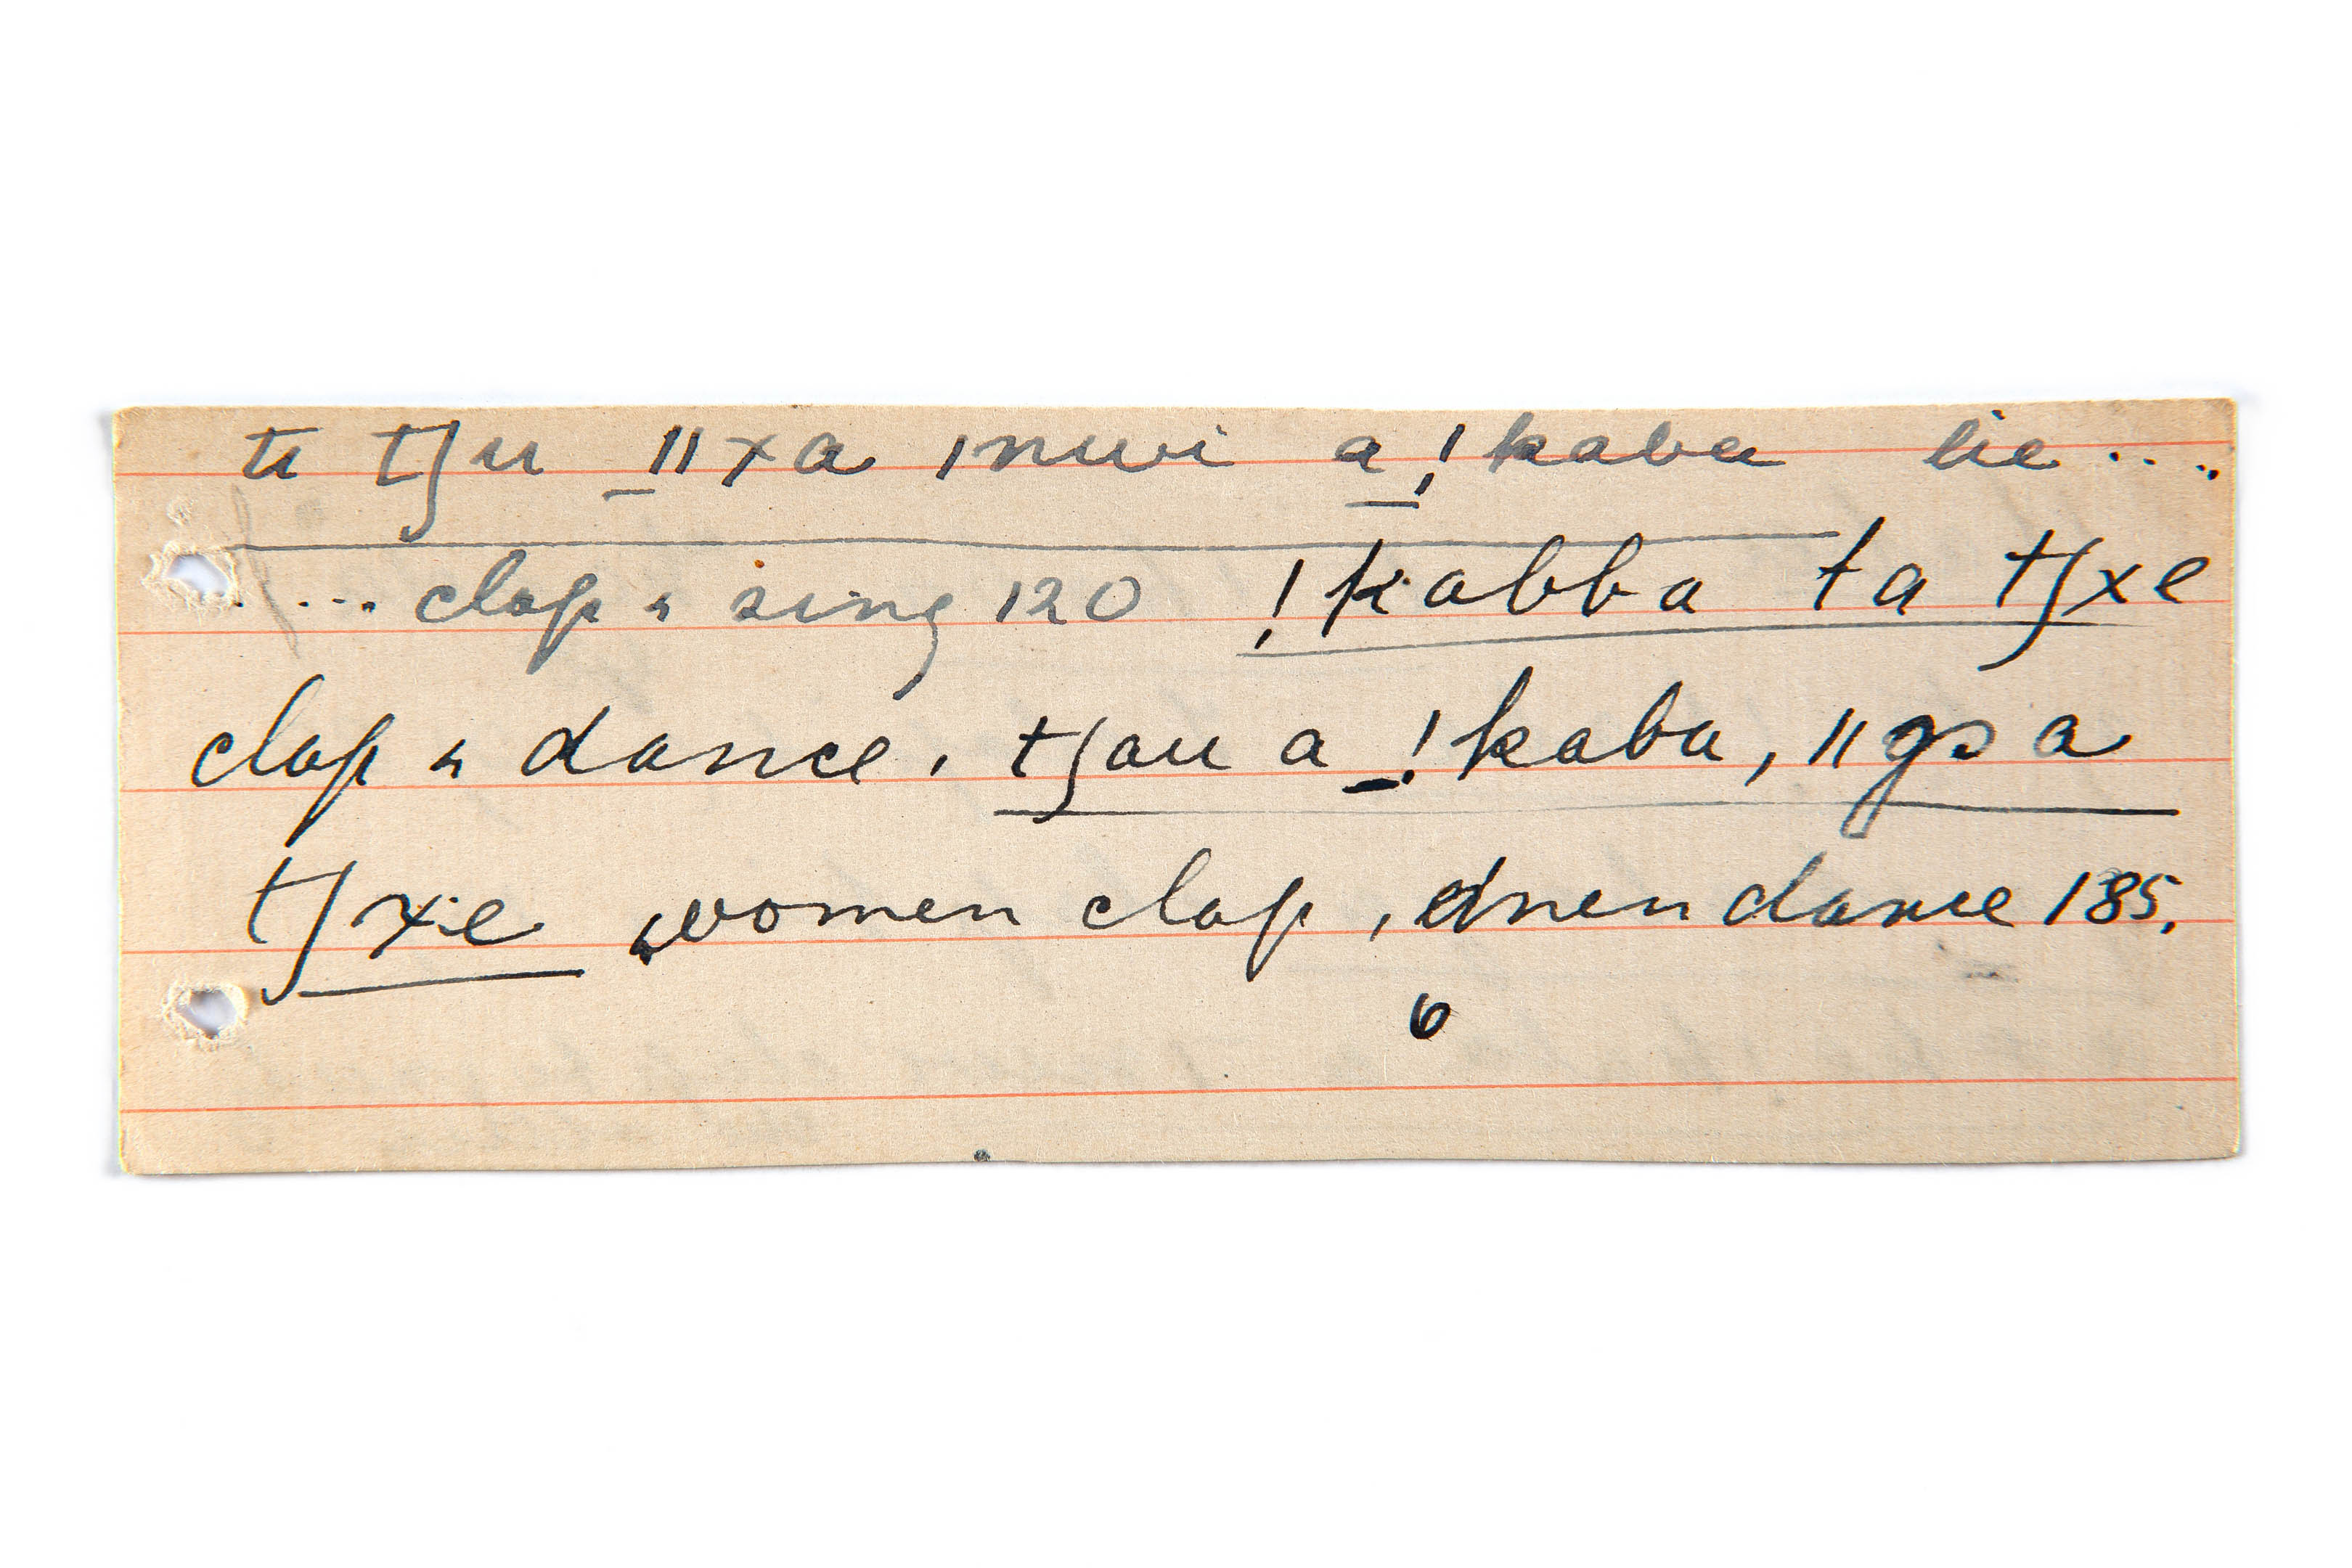 ti tʃu _ǁxa ǀnwi a_!kaba lie ....
.... clap & sing 120 !kabba ta tʃxe
clap & dance, tʃau a_!kaba, ǁgɔ a
tʃxe women clap, men dance 185.
6